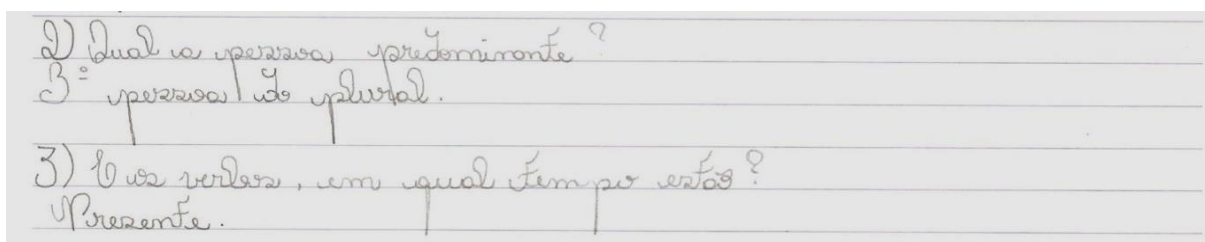 2) Qual a pessoa predominante?
3º pessoa do plural.
3) E os verbos, em qual tempo estão?
Presente.